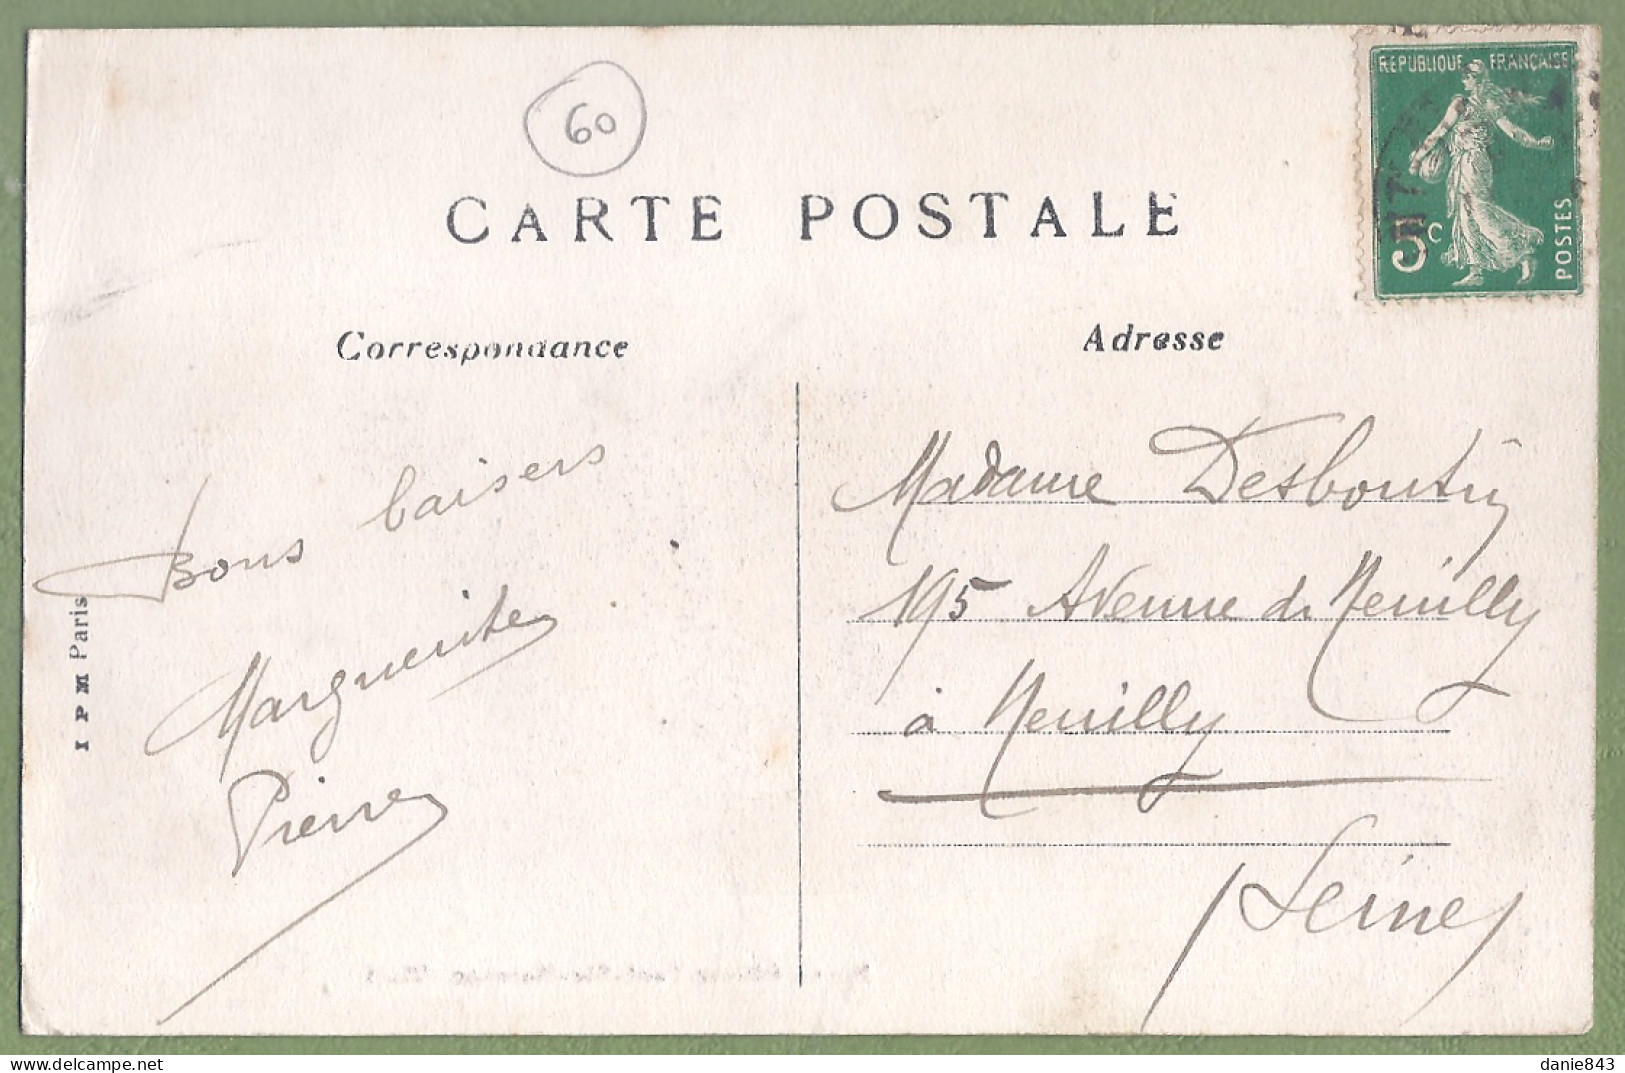 60
REPUBLIQUE FRANÇAISE
5c
POSTES
CARTE POSTALE
Correspondance
Adresse
Bons baisers
Marguerite
Pierre
I P M Paris
Madame Desboutin
195 Avenue de Neuilly
à Neuilly
(Seine)
danie843